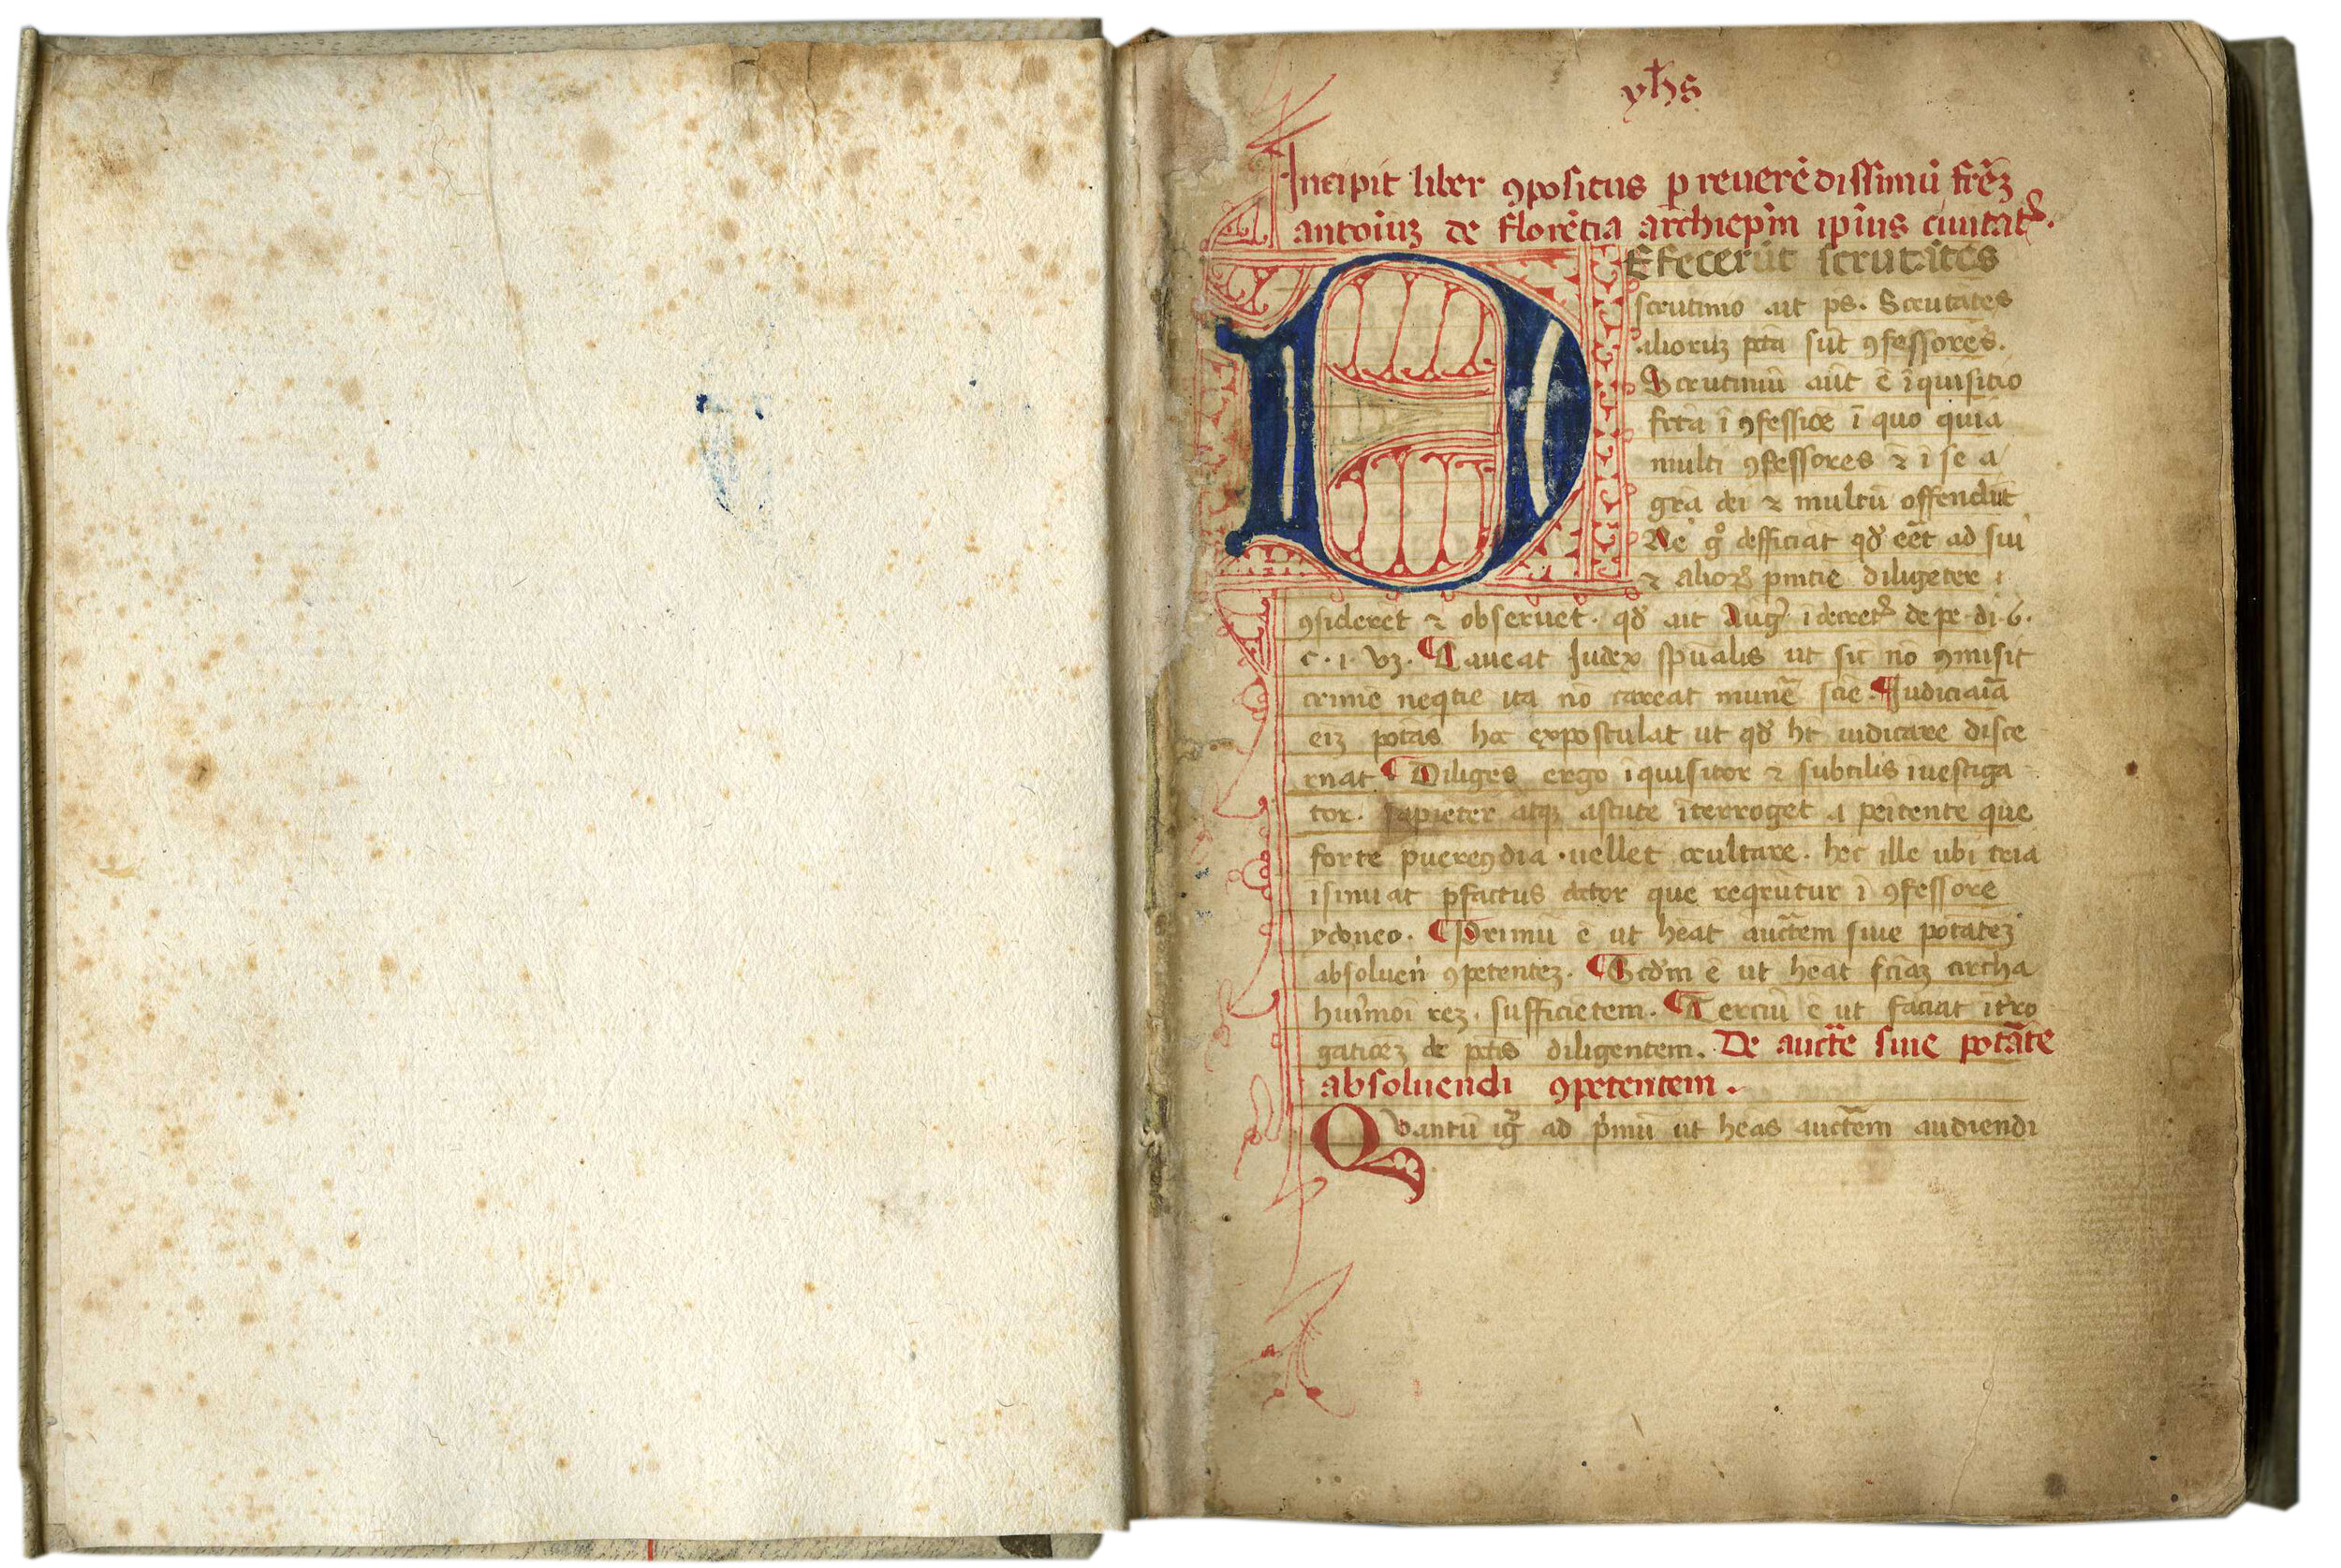 yħs
Incipit liber ꝯpositus ꝑ reuerēdissimū frēꝫ
antoniuꝫ de florētia archiepm̄ ip̄ius ciuitat
DEfecerūt scrutātes
scrutinio ait ps. Scrutātes
alioruꝫ pctā sūt ꝯfessores.
Scrutiniū aūt ē īquisitio
fcta ī ꝯfessiōe ī quo quia
multi ꝯfessores ⁊ ī se a
gr̄a dei ⁊ multū offendūt
Ne gͦ defficiat qđ eēt ad sui
⁊ alioꝝ pnitīe diligēter
ꝯsideret ⁊ obseruet. qđ ait Aug. ī decret de pe. di. 6.
c. 1. vꝫ. Caueat Iudex sp̄ualis ut sic nō ꝯmisit
crimē neqtie ita nō careat munē scīe. Iudiciaiā
eīꝫ potās hoc expostulat ut qđ ht̄ iudicare disce
rnat. Diligēs ergo īquisitor ⁊ subtilis īuestiga
tor. sapiēter atqꝫ astute īterroget a peītente que
forte verecūdia uellet ocultare. hec ille ubi tria
īsinuat p̄factus doctor que reqrūtur ī ꝯfessore
ydoneo. Primū ē ut hēat auctem̄ siue potateꝫ
absoluen ꝯpetenteꝫ. Scd̄m ē ut hēat sciāꝫ circha
hui᾽moi reꝫ. sufficiētem. Terciū ē ut faciat it̄ro
gatiōeꝫ de pctis diligentem. De aucte siue potāte
absoluendi ꝯpetentem.
Qvantū ig ad pͥmū ut hēas auctem̄ audiendi